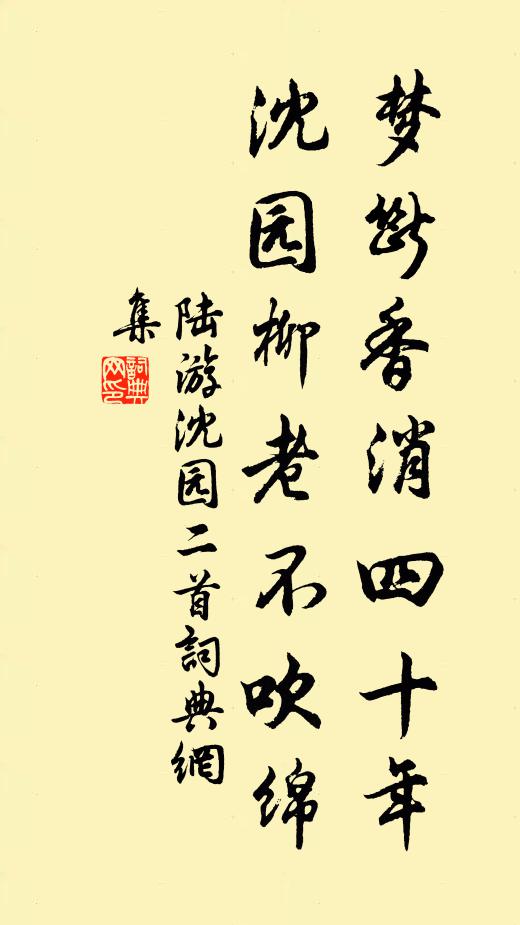 梦断香消四十年
沈园柳老不吹绵
陆游沈园二首詞典網
集
詞典网印